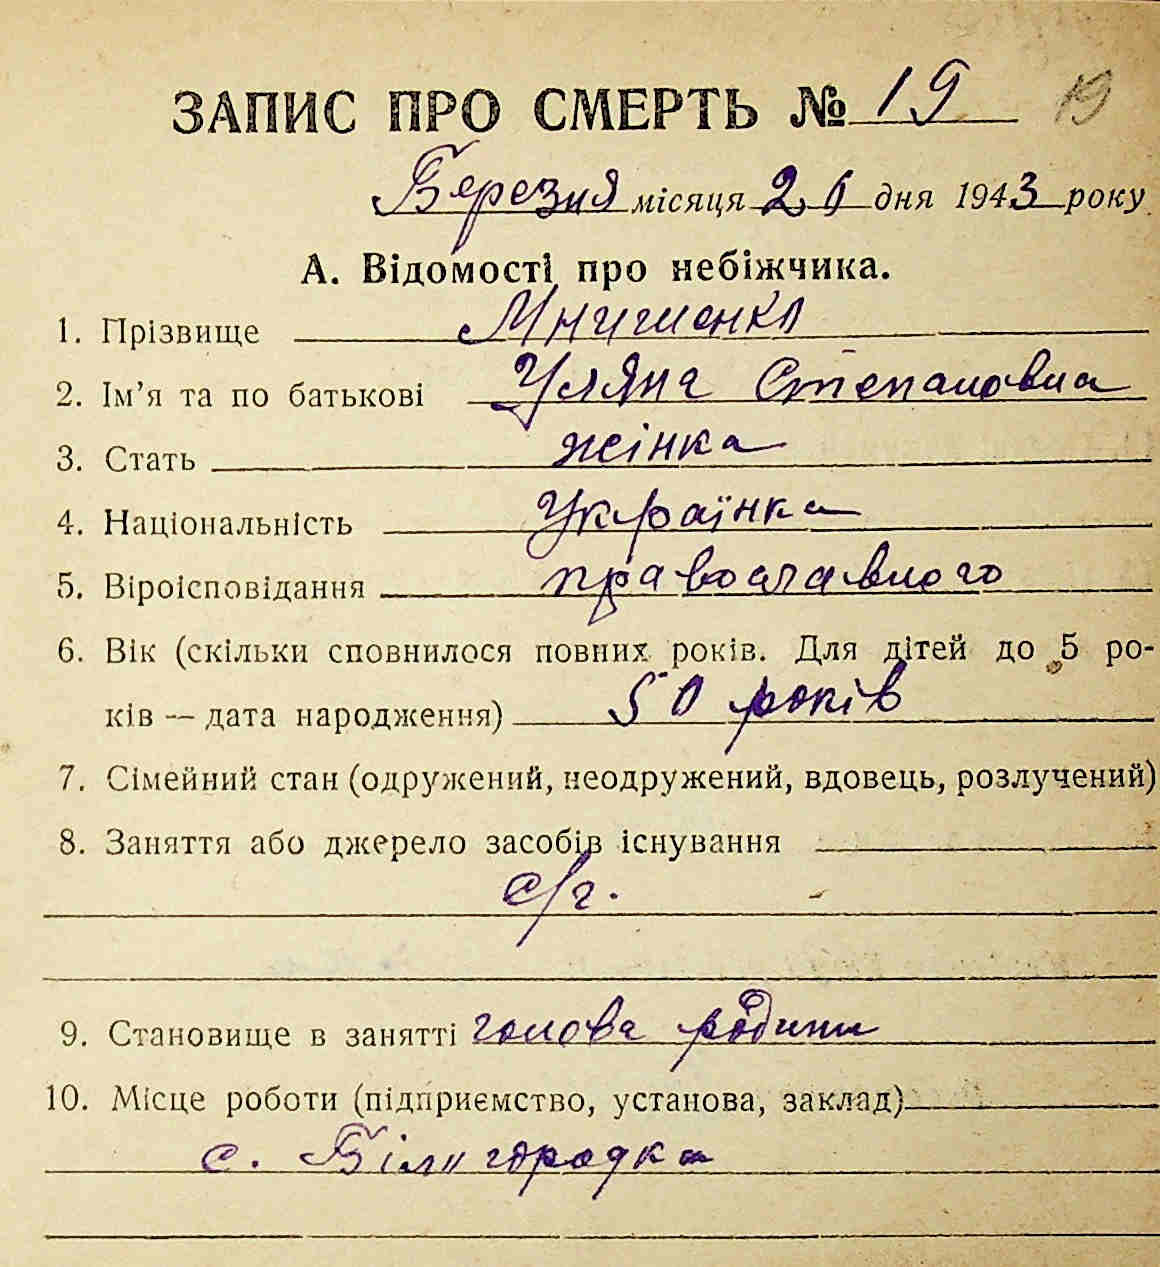 ЗАПИС ПРО СМЕРТЬ № 19 19
Березня місяця 26 дня 1943 року
А. Відомості про небіжчика.
1. Прізвище
2. Ім'я та по батькові Уляна Степановна
3. Стать жінка
4. Національність Українка
5. Віроісповідання православного
6. Вік (скільки сповнилося повних років. Для дітей до 5 ро-
ків — дата народження) 50 років
7. Сімейний стан (одружений, неодружений, вдовець, розлучений)
8. Заняття або джерело засобів існування
с/г.
9. Становище в занятті голова родини
10. Місце роботи (підприємство, установа, заклад)
с. Білигородка